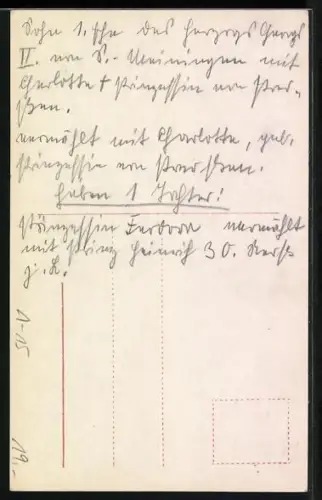 Sohn 1. Ehe des Herzogs Georgs
II. von S.-Meiningen mit
Charlotte † Prinzessin von Preu-
ßen.
vermählt mit Charlotte, geb.
Prinzessin von Preußen.
haben 1 Tochter!
Prinzessin Feodora vermählt
mit Prinz Heinrich 30. Reuß
j. L.
A-15
19.-